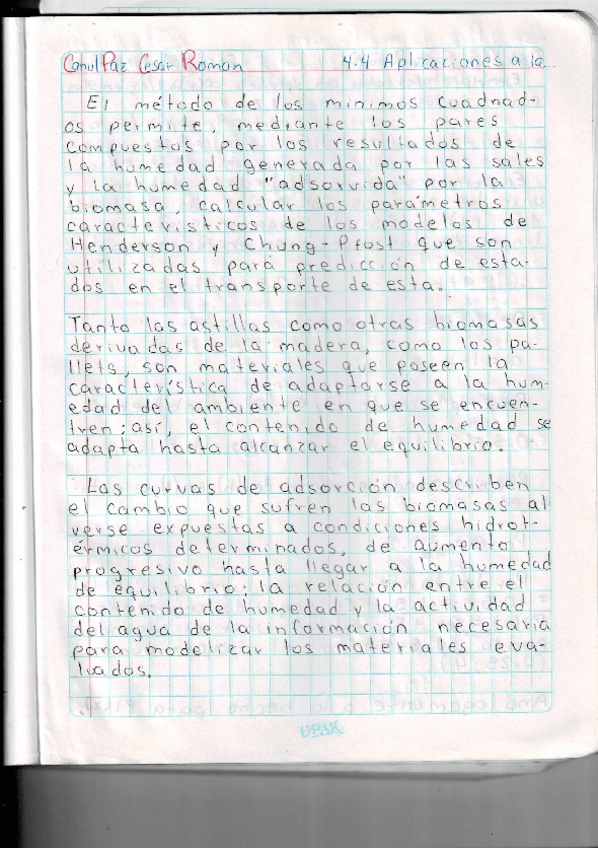 Canul Paz Cesar Roman 4.4 Aplicaciones a la...
El método de los minimos cuadrad-
os permite, mediante los pares
compuestas por los resultados de
la humedad generada por las sales
y la humedad "adsorvida" por la
biomasa, calcular los parámetros
caracteristicos de los modelos de
Henderson y Chung-Pfost que son
utilizadas para predicción de esta-
dos en el transporte de esta.
Tanto las astillas como otras biomasas
derivadas de la madera, como los pa-
llets, son materiales que poseen la
característica de adaptarse a la hum-
edad del ambiente en que se encuen-
tren; así, el contenido de humedad se
adapta hasta alcanzar el equilibrio.
Las curvas de adsorción describen
el cambio que sufren las biomasas al
verse expuestas a condiciones hidrot-
érmicos determinados, de aumento
progresivo hasta llegar a la humedad
de equilibrio; la relación entre el
contenido de humedad y la actividad
del agua de la información necesaria
para modelizar los materiales eva-
luados.
UPAK